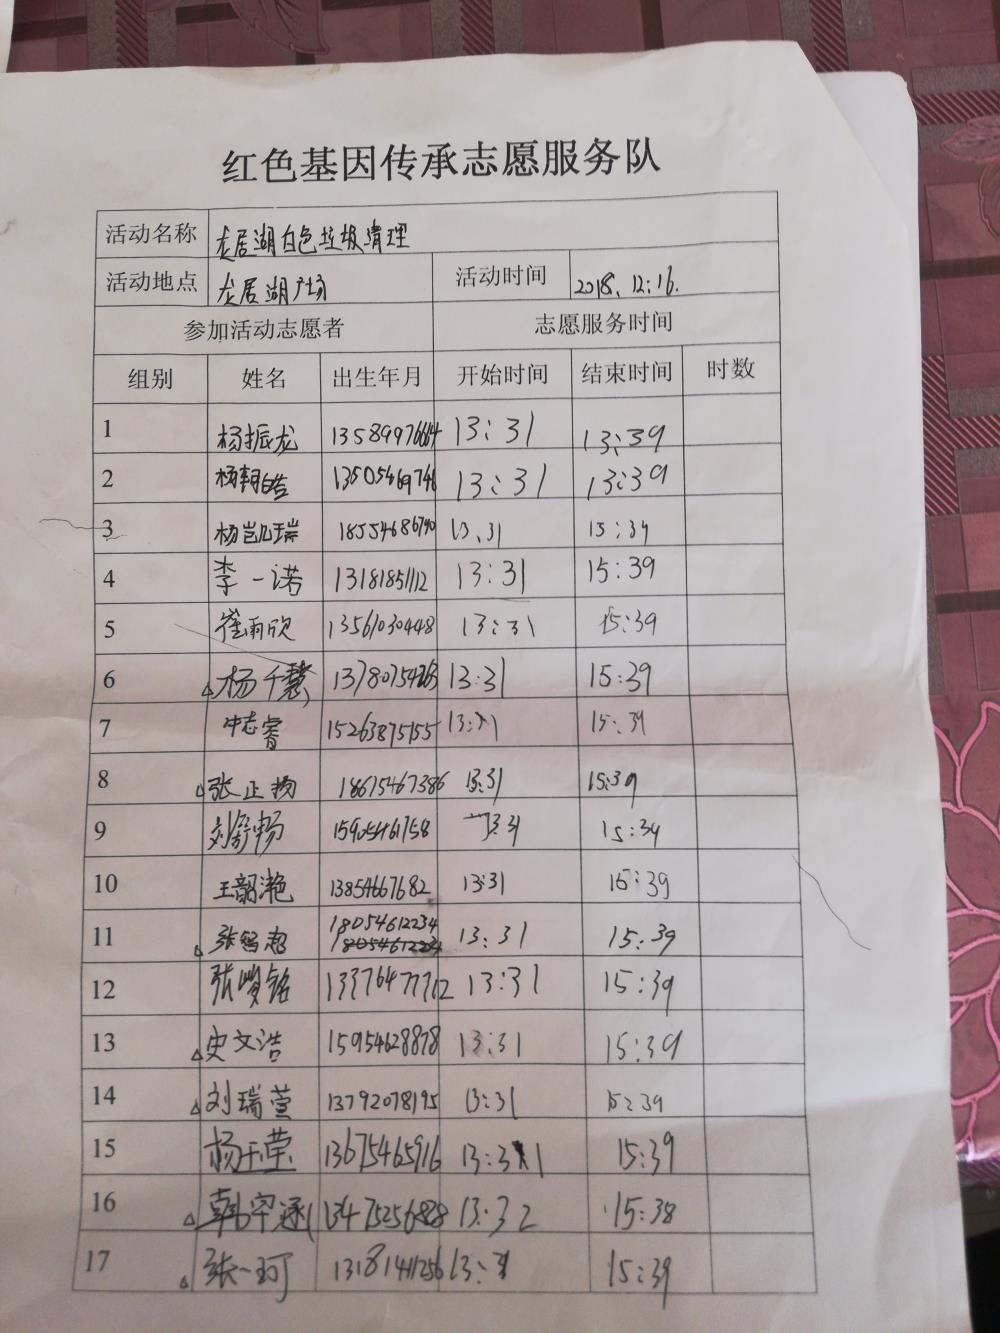 红色基因传承志愿服务队
活动名称 龙居湖白色垃圾清理
活动地点 龙居湖广场 活动时间 2018.12.16.
参加活动志愿者 志愿服务时间
组别 姓名 出生年月 开始时间 结束时间 时数
1 杨振龙 13589976664 13:31 13:39
2 杨翱皓 13:31 13:39
3 杨凯瑞 18554686790 13.31 15:39
4 李一诺 13181851112 13:31 15:39
5 崔雨欣 13561030448 13:31 15:39
6 △杨千慧 13:31 15:39
7 志睿 15263875155 13:31 15:39
8 △张正扬 18675467386 13:31 15:39
9 刘舒畅 15905461758 13:31 15:39
10 王韶滟 13854667682 13:31 15:39
11 △张 18054612234 13:31 15:39
12 张峻铭 13:31 15:39
13 △史文浩 15954628878 13:31 15:39
14 △刘瑞萱 13792078195 13:31 15:39
15 杨千莹 13675465916 13:31 15:39
16 △韩 涵 13475256828 13:32 15:38
17 △张一珂 13181411256 13:31 15:39